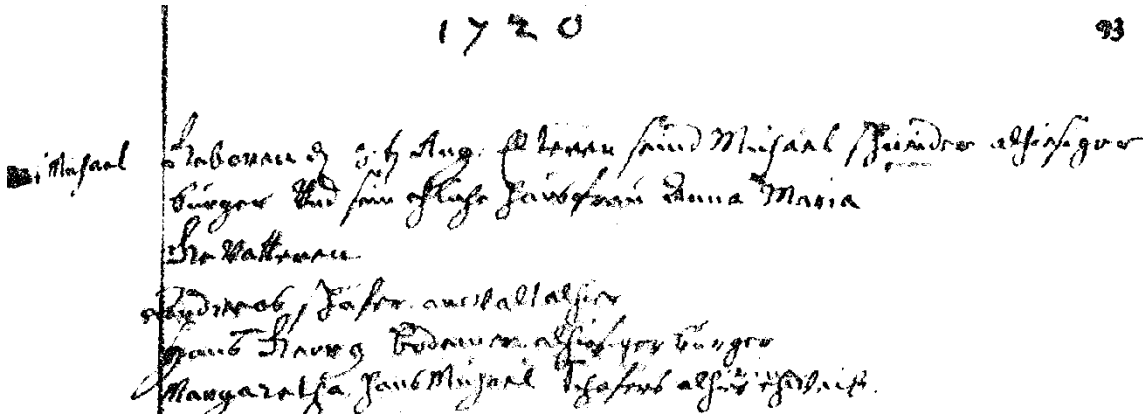 1720
93
Michael
Geboren d Aug. Elteren seind Michael Schneider alhiesiger
burger Und sein ehliche hausfrau Anna Maria
Gevatteren
Andreas Schäfer anwalt alhier
Hans Georg alhiesiger burger
Margaretha Hans Michael Schäfers alhier eheweib.